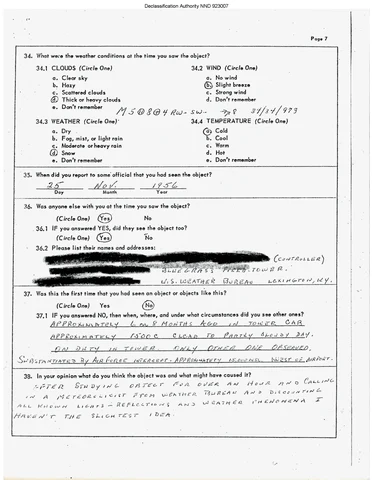 Declassification Authority NND 923007
Page 7
34. What were the weather conditions at the time you saw the object?
34.1 CLOUDS (Circle One) 34.2 WIND (Circle One)
a. Clear sky a. No wind
b. Hazy b. Slight breeze
c. Scattered clouds c. Strong wind
d. Thick or heavy clouds d. Don't remember
e. Don't remember
34.3 WEATHER (Circle One) 34.4 TEMPERATURE (Circle One)
a. Dry a. Cold
b. Fog, mist, or light rain b. Cool
c. Moderate or heavy rain c. Warm
d. Snow d. Hot
e. Don't remember e. Don't remember
35. When did you report to some official that you had seen the object?
25 NOV. 1956
Day Month Year
36. Was anyone else with you at the time you saw the object?
(Circle One) Yes No
36.1 IF you answered YES, did they see the object too?
(Circle One) Yes No
36.2 Please list their names and addresses:
(CONTROLLER)
BLUEGRASS FIELD TOWER
U.S. WEATHER BUREAU LEXINGTON, KY.
37. Was this the first time that you had seen an object or objects like this?
(Circle One) Yes No
37.1 IF you answered NO, then when, where, and under what circumstances did you see other ones?
APPROXIMATELY MONTHS AGO IN TOWER CAB
APPROXIMATELY 1500C CLEAR TO PARTLY CLOUDY DAY.
ON DUTY IN TOWER ONLY OTHER ONE OBSERVED.
SUBSTANTIATED BY AIR FORCE INTERCEPT. APPROXIMATELY WEST OF AIRPORT.
38. In your opinion what do you think the object was and what might have caused it?
AFTER STUDYING OBJECT FOR OVER AN HOUR AND CALLING
IN A METEOROLOGIST FROM WEATHER BUREAU AND DISCOUNTING
ALL KNOWN LIGHTS - REFLECTIONS AND WEATHER PHENOMENA I
HAVEN'T THE SLIGHTEST IDEA.